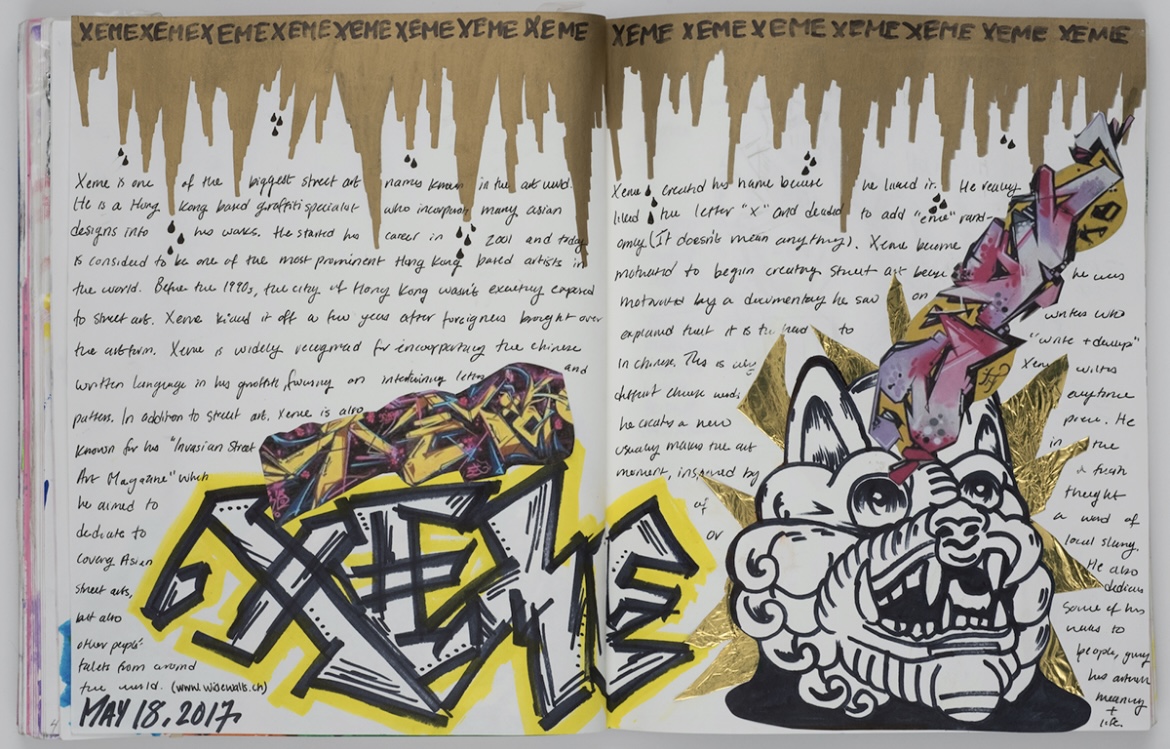 XEME XEME XEME XEME XEME XEME XEME XEME
Xeme is one of the biggest street art names known in the art world.
He is a Hong Kong based graffiti specialist who incorporates many asian
designs into his works. He started his career in 2001 and today
is considered to be one of the most prominent Hong Kong based artists in
the world. Before the 1990s, the city of Hong Kong wasn't exposed
to street art. Xeme kicked it off a few years after foreigners brought over
the artform. Xeme is widely recognized for incorporating the chinese
written language in his graffiti focusing on intertwining letters and
pattern. In addition to street art, Xeme is also
known for his "Invasian Street
Art Magazine" which
he aimed to
dedicate to
covery Asian
street arts,
but also
other people's
talets from around
the world. (www.widewalls.ch)
MAY 18, 2017.
XEME
XEME XEME XEME XEME XEME XEME XEME
Xeme created his name because he liked it. He really
liked the letter "x" and decided to add "eme" rand-
omly (It doesn't mean anything). Xeme became
motivated to begin creating street art he was
motivated by a documentary he saw on writers who
explained that it is too hard to "write + develop"
in chinese. This is why Xeme writes
different chinese words everytime
he creates a new piece. He
usually makes the art in the
moment, inspired by a fresh
thought
of a word of
or local slang.
He also
dedicates
some of his
walls to
people, giving
his artwork
meaning
+
life.